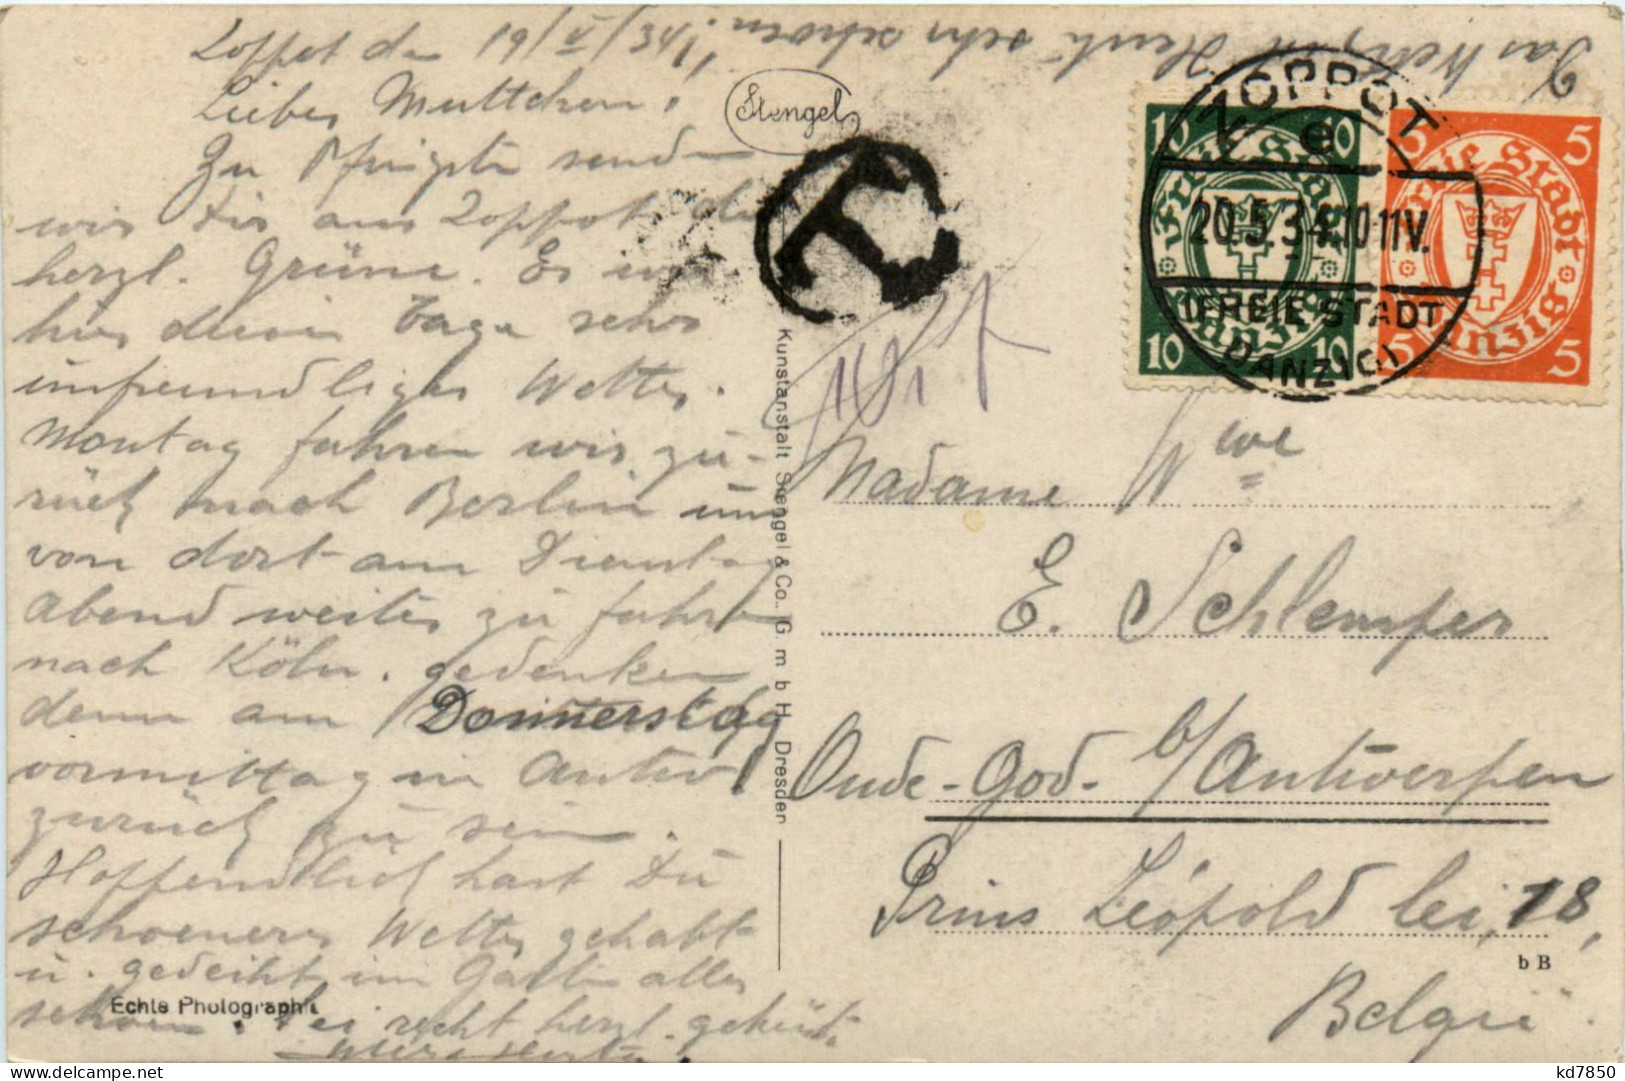 Das Wetter ist Heute sehr schoen!
Zoppot den 19/V/34
Liebes Muttchen!
Zu Pfingsten senden
wir Dir aus Zoppot die
herzl. Grüsse. Es war
hier diese Tage sehr
unfreundliges Wetter.
Montag fahren wir zu-
rück nach Berlin um
von dort am Dienstag
abend weiter zu fahren
nach Köln. gedenken
dann am Donnerstag
vormittag in Antw.
zurück zu sein.
Hoffendlich hast Du
schoeneres Wetter gehabt
u. gedeiht im Garten alles
schoen. Sei recht herzl. geküsst
Stengel
T
ZOPPOT
e
20.5.34.10-11V.
FREIE STADT
DANZIG
10 10
Freie Stadt
Danzig
10 10
5 5
Freie Stadt
Danzig
5 5
Kunstanstalt Stengel & Co., G m b H. Dresden
Madame Wwe
E. Schlemper
Oude-God- b/Antwerpen
Prins Léopold lei, 18,
b B
België
Echte Photographie
kd7850